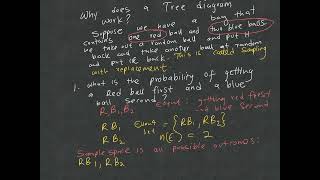 Why does a Tree diagram
work?
Suppose we have a bag that
contains one red ball and two blue balls.
we take out a random ball and put it
back and take another ball at random
and put it back. This is called sampling
with replacement.
1. what is the probability of getting
a Red ball first and a blue
ball second
R B1, B2 event: getting red first
and blue second
R B1 Event let = {RB1, RB2}
R B2 n(E) = 2
Sample space is all possible outcomes:
RB1, RB2